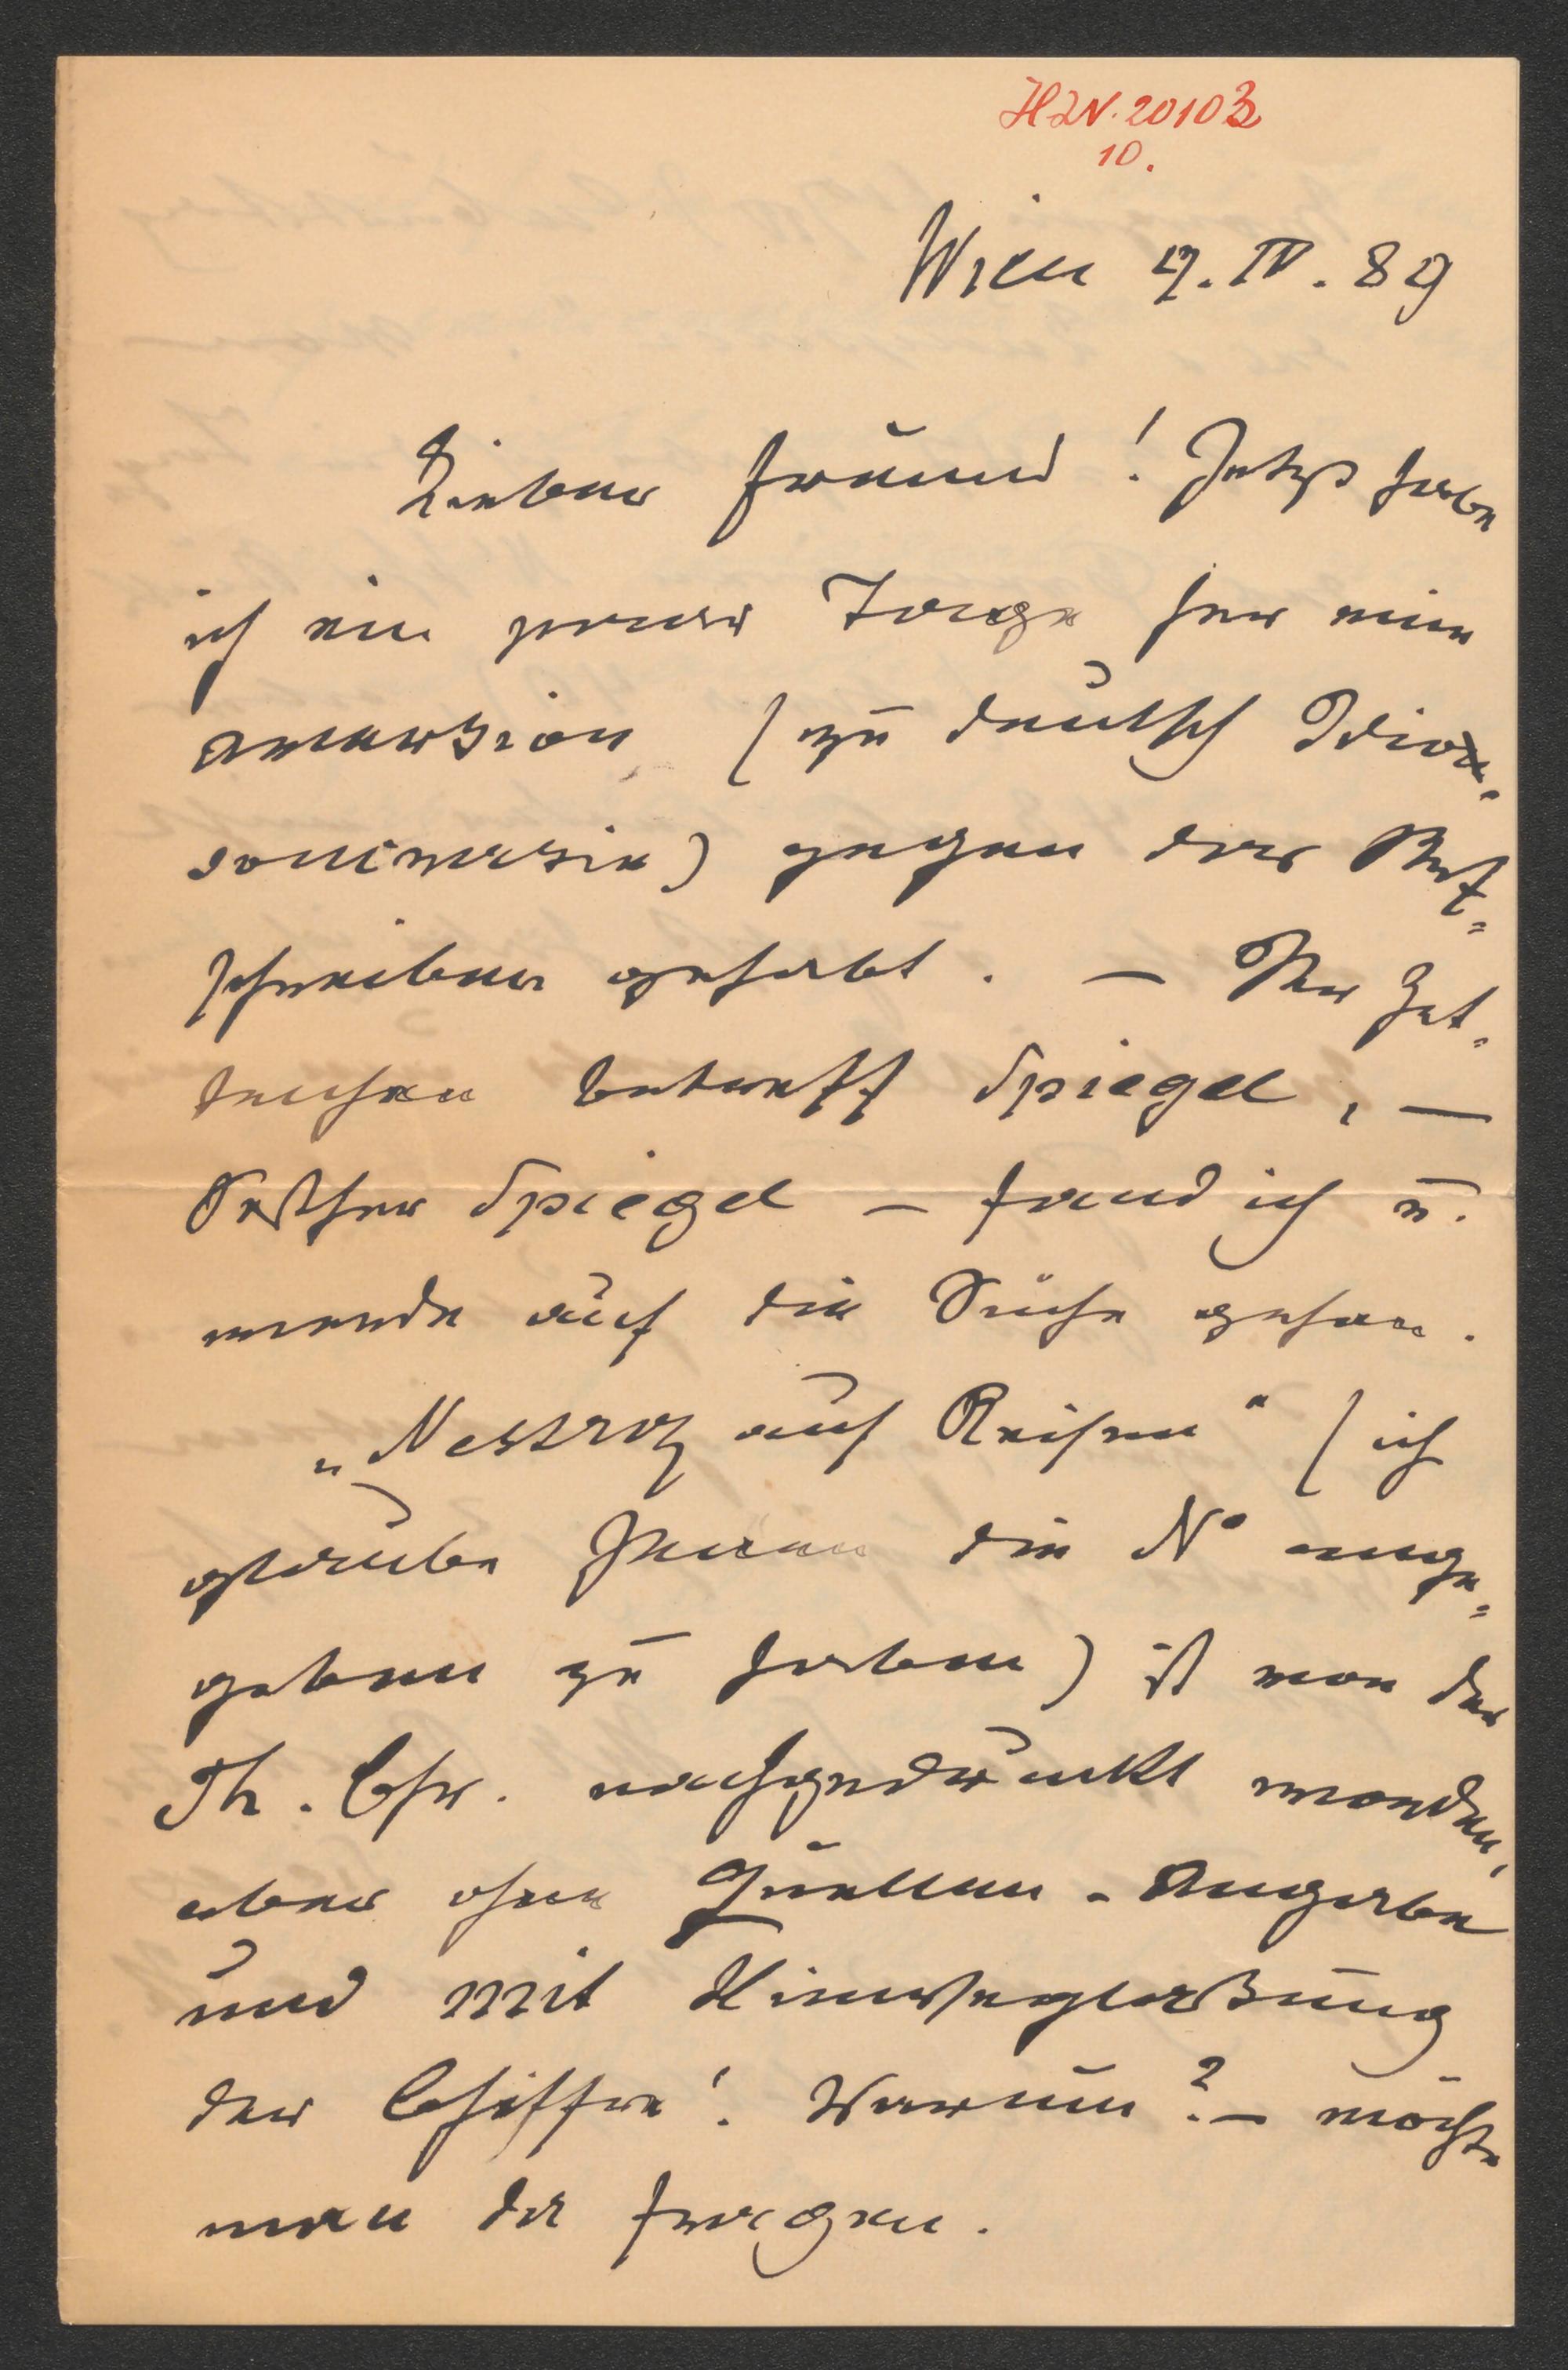 HIN. 20103
10.
Wien 9. IV. 89
Lieber Freund! Jetzt habe
ich ein paar Tage her eine
Aversion (zu deutsch Idio-
soncrasie) gegen das
schreiben gehabt. – Ihr Zet-
telchen betreff Spiegel, –
Pesther Spiegel – fand ich u.
werde auf die Suche gehen.
„Nestroy auf Reisen" (ich
glaube Ihnen die No ange=
geben zu haben) ist von der
Th. Chr. nachgedruckt worden,
aber ohne Quellen-Angabe
und mit Hinweglaßung
der Chiffre! Warum? – möchte
man da fragen.